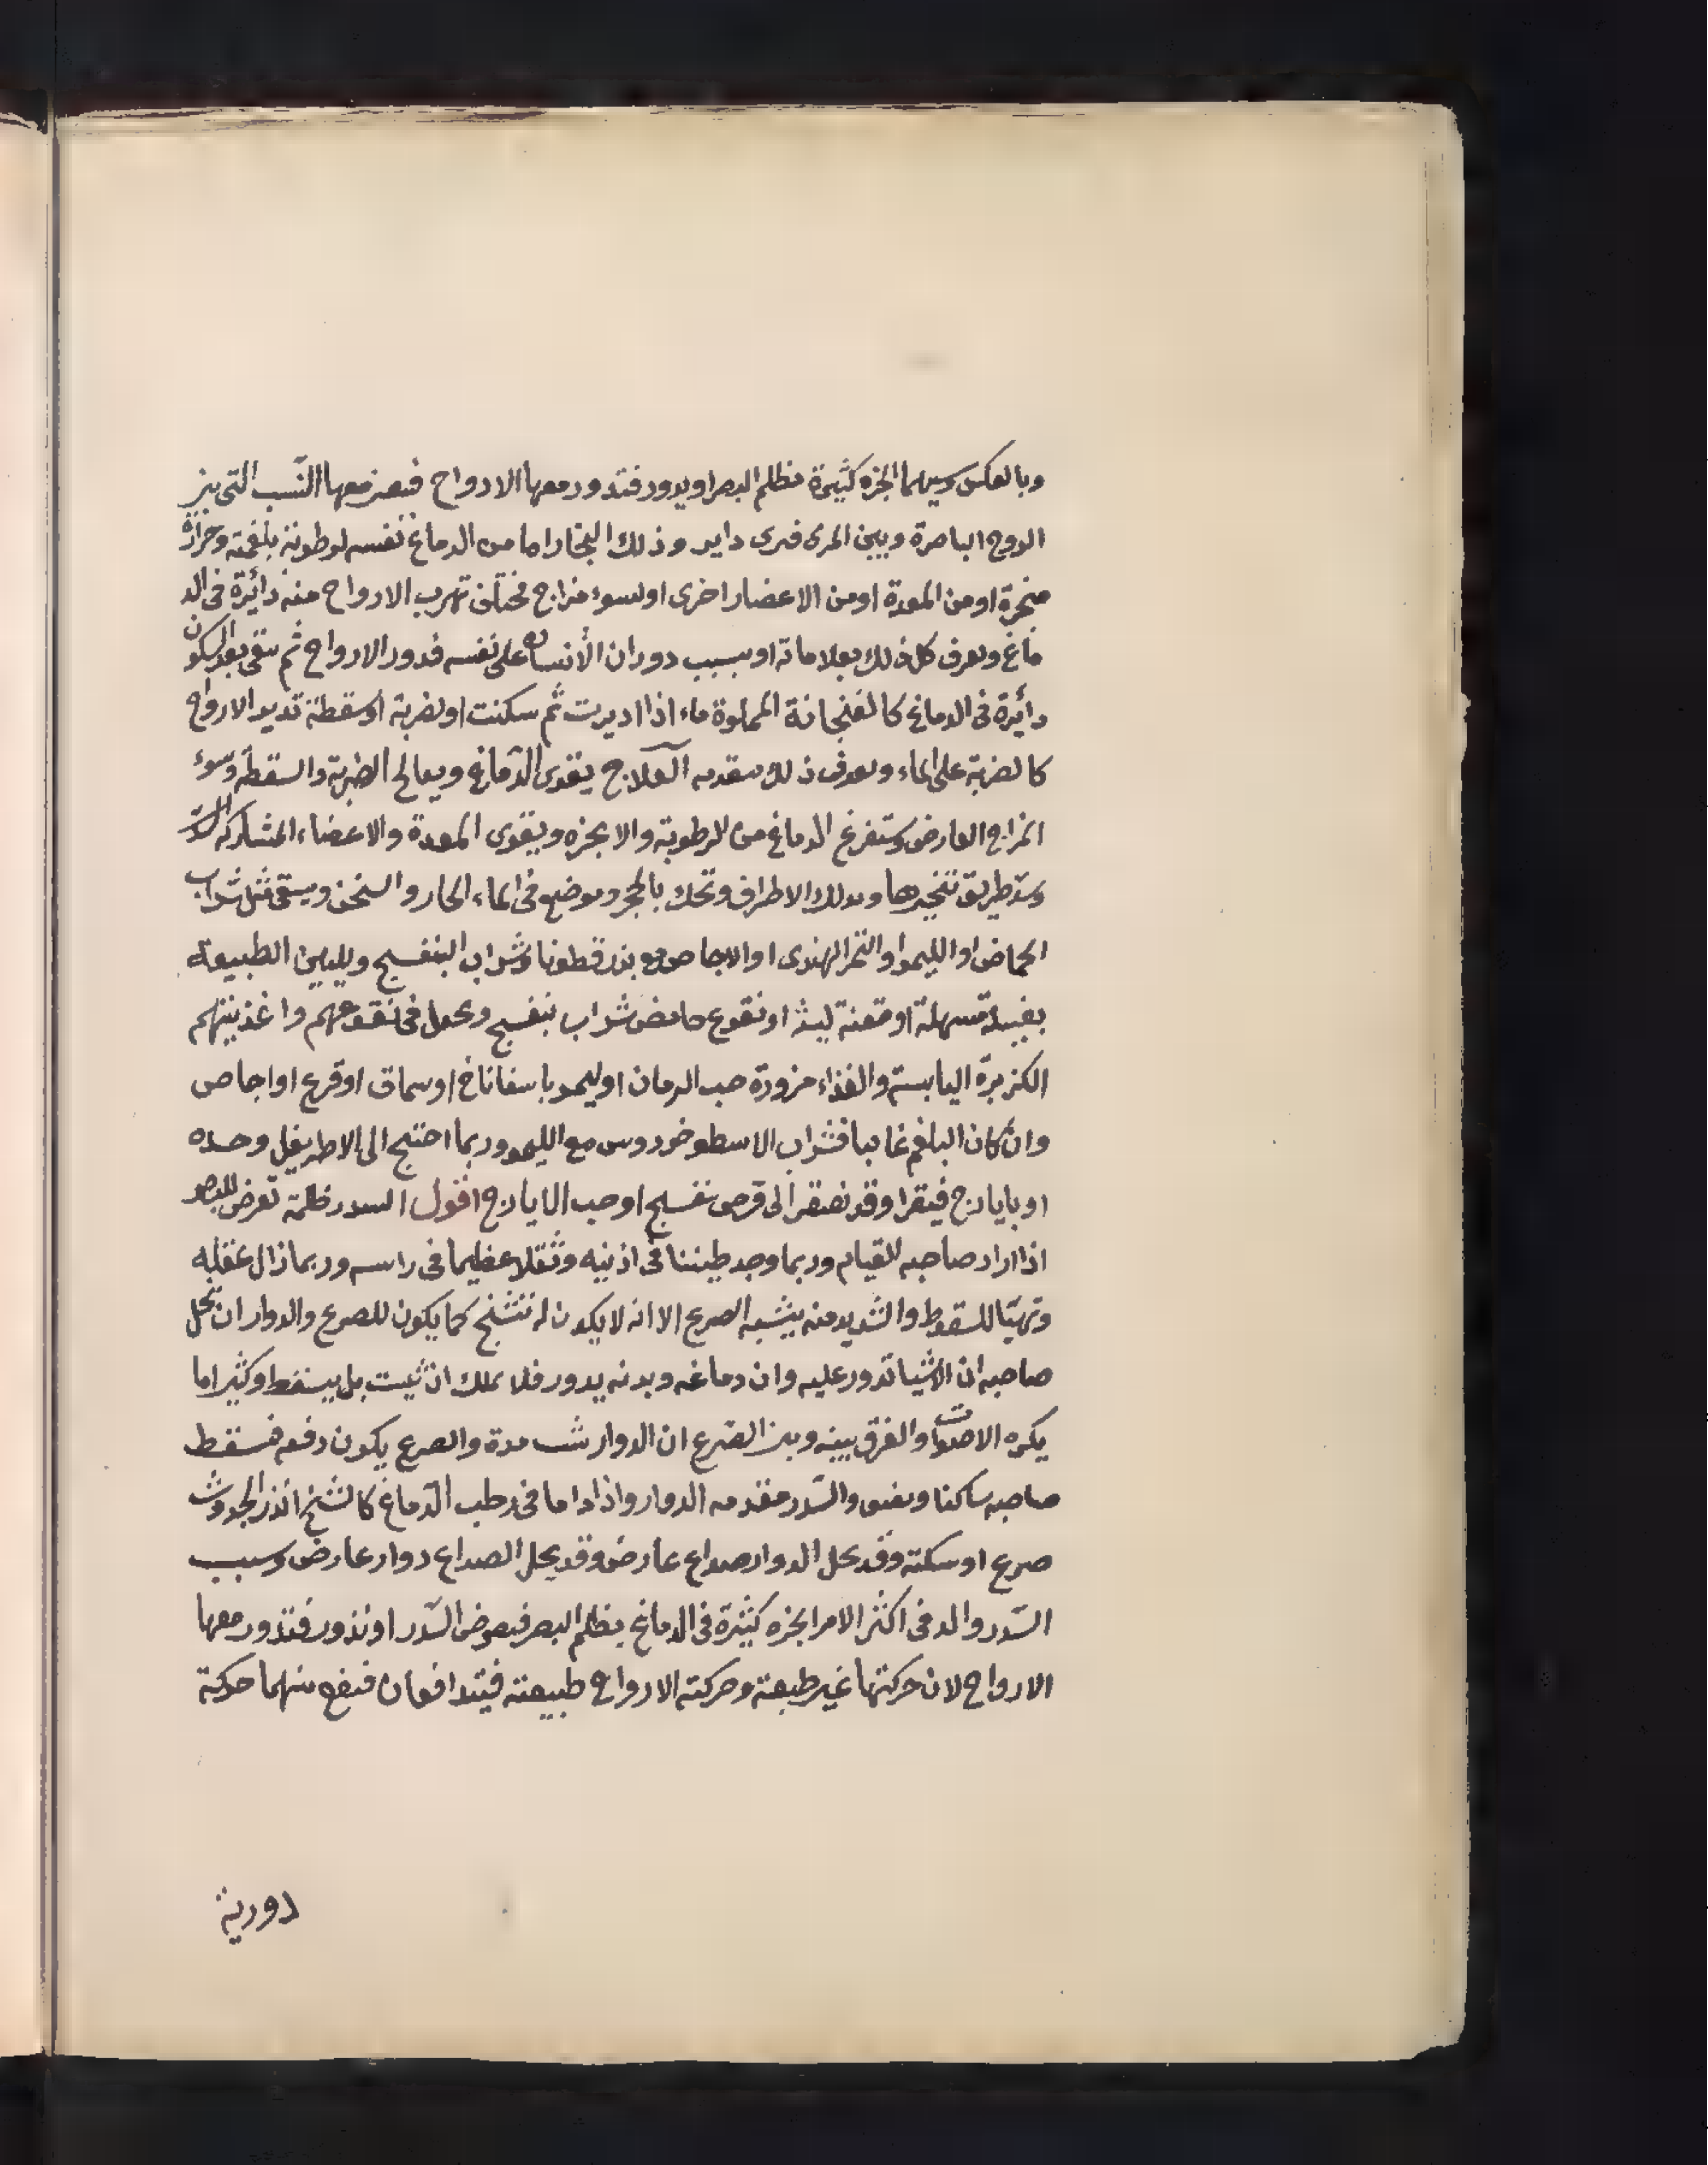 وبالعكس وسببهما ابخرة كثيرة تظلم البصر او يدور فتدور معها الارواح فيتغير معها النسب التي بين
الروح الباصرة وبين المرئ فيرى داير وذلك البخار اما من الدماغ نفسه لرطوبة بلغمية وحرارة
مبخرة او من المعدة او من الاعضاء اخرى او لسوء مزاج مختلف تهرب الارواح منه دائرة في الد
ماغ ويعرف كل ذلك بعلاماته او بسبب دوران الانسان على نفسه فدور الارواح ثم تبقى بعد السكون
دائرة في الدماغ كالفنجانة المملوة ماء اذا اديرت ثم سكنت او لضربة او سقطة تدير الارواح
كالضربة على الماء ويعرف ذلك بتقدمه العلاج يقوى الدماغ ويعالج الضربة والسقطة وسوء
المزاج العارض وستفرغ الدماغ من الرطوبة والابخره ويقوى المعدة والاعضاء المشاركه
تبخيرها وبدلك الاطراف وتحك بالحجر وموضع في الماء الحار والسخن ويسقى مثل شراب
الحماض او الليمو او التمر الهندى او الاجاص مع بزر قطونا وشراب البنفسج وتليين الطبيعة
بفتيلة مسهلة او حقنة لينة او نقوع حامض شراب بنفسج ويجعل في نقوعهم واغذيتهم
الكزبرة اليابسة والغذاء مزورة حب الرمان او ليمو باسفاناخ او سماق او قرع او اجاص
وان كان البلغم غالبا فشراب الاسطوخودوس مع الليمو وربما احتيج الى الاطريفل وحده
او بايارج فيقرا وقد نفتقر الى قرص بنفسج او حب الايارج اقول السدر ظلمة تعرض للبصر
اذا اراد صاحبه للقيام وربما وجد طنينا في اذنيه وثقلا عظيما في راسه وربما زال عقله
وتهيّا للسقوط والشديد منه يشبه الصرع الا انه لا يكون له تشنج كما يكون للصرع والدوار ان تخيل
صاحبه ان الاشيا تدور عليه وان دماغه وبدنه يدور فلا يملك ان يثبت بل يسقط وكثيرا ما
يكره الاصوات والفرق بينه وبين الصرع ان الدوار يثبت مدة والصرع يكون دفعه فيسقط
صاحبه ساكنا ويفيق والسدر مقدمه الدوار واذا داما في رطب الدماغ كالشيخ انذرا لحدوث
صرع او سكتة وقد يحل الدوار صداع عارض وقد يحل الصداع دوار عارض وسبب
السدر والد في اكثر الامر ابخره كثيرة في الدماغ يظلم البصر فيعرض السدر او تدور فتدور معها
الارواح لان حركتها غير طبيعة وحركته الارواح طبيعته فيتدافعان فيقع بينهما حركة
دورية